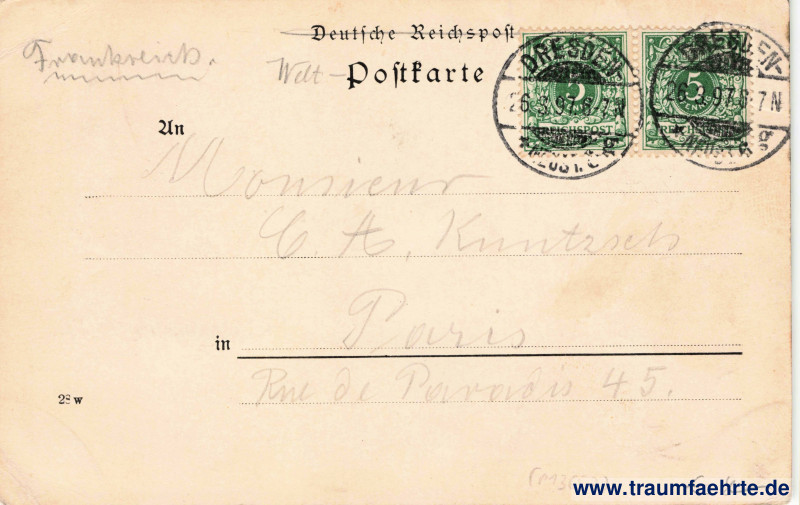 Deutsche Reichspost
Frankreich.
Welt-Postkarte
DRESDEN-
26.3.97.6-7N
5
REICHSPOST
DRESDEN-
26.3.97.6-7N
5
An
Monsieur
C. A. Kuntzsch
in Paris
Rue de Paradis 45.
28 w
www.traumfaehrte.de